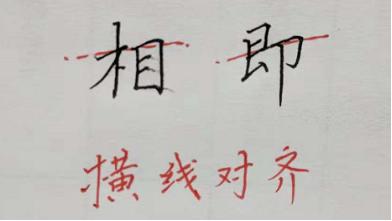 相 即
横线对齐